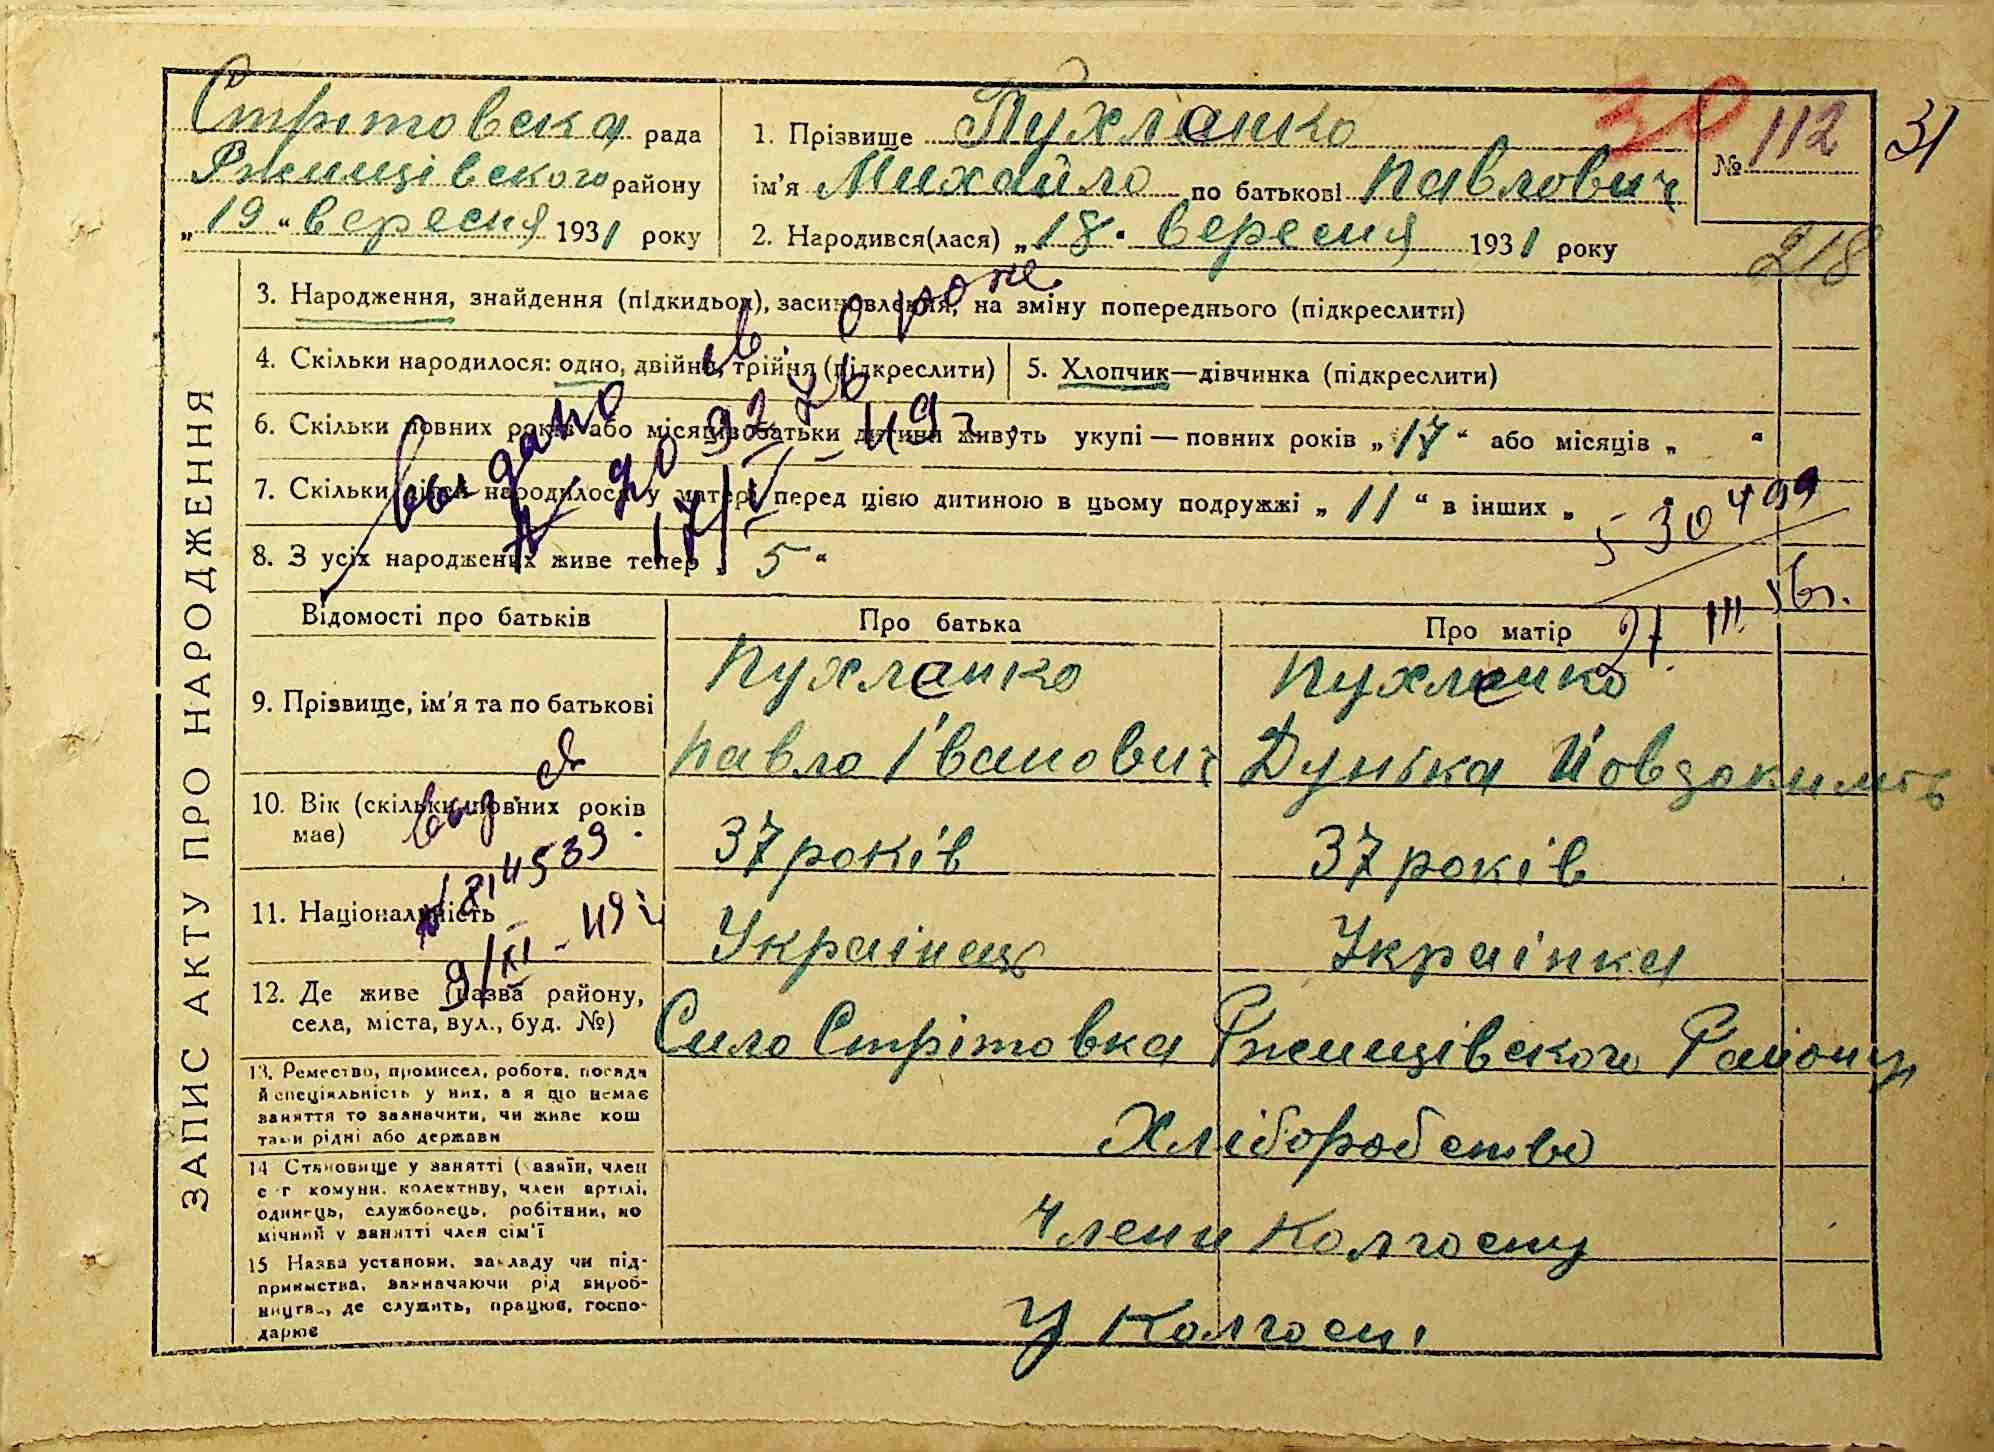 Стрітовска рада
Ржищівского району
„19“ вересня 1931 року
1. Прізвище Пухленко
ім'я Михайло по батькові Павлович
2. Народився(лася) „18. вересня 1931 року
30
№ 112
31
218
ЗАПИС АКТУ ПРО НАРОДЖЕННЯ
3. Народження, знайдення (підкидьок), засиновлення, на зміну попереднього (підкреслити)
4. Скільки народилося: одно, двійня, трійня (підкреслити)
5. Хлопчик—дівчинка (підкреслити)
6. Скільки повних років або місяців батьки дитини живуть укупі — повних років „17“ або місяців „ “
7. Скільки дітей народилося у матері перед цією дитиною в цьому подружжі „11“ в інших „
8. З усіх народжених живе тепер „5“
выдано
17/IV-49г
30499
27 III
Відомості про батьків
Про батька
Про матір
9. Прізвище, ім'я та по батькові
Пухленко
Павло Іванович
Пухленко
Дунька Йовдокимів
10. Вік (скільки повних років
має)
37 років
37 років
выд
814539
9/XI-49г
11. Національність
Українець
Українка
12. Де живе (назва району,
села, міста, вул., буд. №)
Село Стрітовка Ржищівского Району
13. Ремество, промисел, робота, посада
й спеціяльність у них, а я що немає
заняття то зазначити, чи живе кош
тами рідні або держави
Хліборобство
14 Становище у занятті (хазяїн, член
с-г комуни, колективу, член артілі,
одинець, службовець, робітник, по
мічний у занятті член сім'ї
Члени Колгоспу
15 Назва установи, закладу чи під-
приємства, зазначаючи рід вироб-
ництва, де служить, працює, госпо-
дарює
У Колгоспі